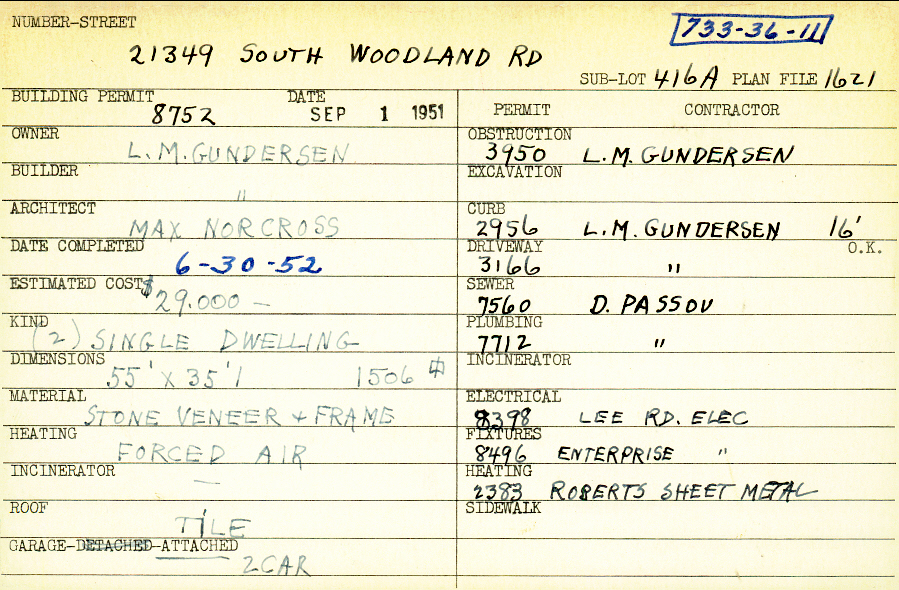 NUMBER-STREET
733-36-11
21349 SOUTH WOODLAND RD
SUB-LOT 416A PLAN FILE 1621
BUILDING PERMIT DATE
8752 SEP 1 1951
PERMIT CONTRACTOR
OWNER
L.M. GUNDERSEN
OBSTRUCTION
3950 L.M. GUNDERSEN
BUILDER
"
EXCAVATION
ARCHITECT
MAX NORCROSS
CURB
2956 L.M. GUNDERSEN 16'
DATE COMPLETED
6-30-52
DRIVEWAY O.K.
3166 "
ESTIMATED COST $
29.000 —
SEWER
7560 D. PASSOV
KIND
(2) SINGLE DWELLING
PLUMBING
7712 "
DIMENSIONS
55' X 35'1 1506 ⌗
INCINERATOR
MATERIAL
STONE VENEER + FRAME
ELECTRICAL
8398 LEE RD. ELEC
HEATING
FORCED AIR
FIXTURES
8496 ENTERPRISE "
INCINERATOR
—
HEATING
2383 ROBERTS SHEET METAL
ROOF
TILE
SIDEWALK
GARAGE-DETACHED-ATTACHED
2 CAR